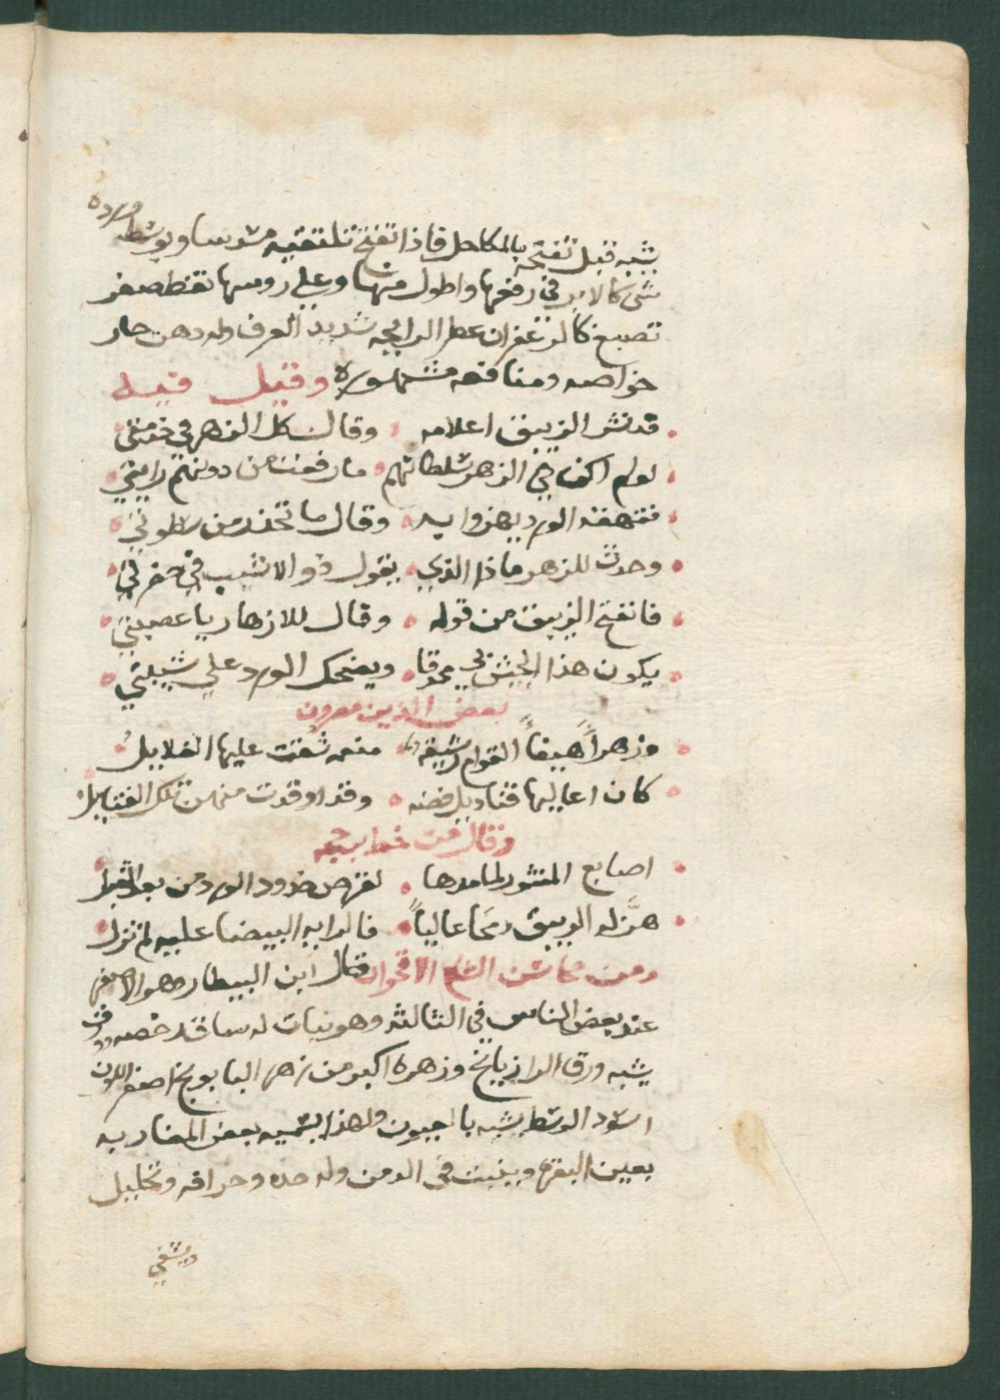 شبه قبل تفتحه بالمكاحل فاذا تفتح تلتقيه مشدسا وبوسطه
شى كالابر في رفعها واطول منها وعلي روسها نقط صفر
تصبغ كالزعفران عطر الرايحه شديد العرف وله دهن حار
خواصه ومنافعه مشهوره وقيل فيه
قد نشر الزيبق اعلامه وقال كل الزهر في خدمتي
لو لم اكن في الزهر سلطانهم ما رفعت من دونهم رايتي
فقهقه الورد يهزوا به وقال ما تحذر من سطوتي
وحدث للزهر ماذا الذي يقول ذو الاشيب في حضرتي
فانفتح الزيبق من قوله وقال للازهار يا عصبتي
يكون هذا الجيش بي محدقا ويضحك الورد علي شيبتي
بعض الدين
وزهراً هيفاً القوام رشيقه منعمه شقت عليها الغلايل
كان اعاليها قناديل فضه وقد اوقدت منهن تلك الفتايل
وقال من خط
اصابع المنثور لما مدها لقرص خدود الورد من بعد القبل
هز له الزيبق رمحا عاليا فالرايه البيضا عليه لم تزل
ومن الاقحوان قال ابن البيطار وهو الاصفر
عند بعض الناس في الثالثه وهو نبات له ساق
يشبه ورق الرازيانج وزهره اكبر من زهر البابونج اصفر اللون
اسود الوسط يشبه بالعيون ولهذا يسميه بعض المغاربه
بعين البقره وينبت في الدمن وله حده وحرافه وتحليل
ويشفي